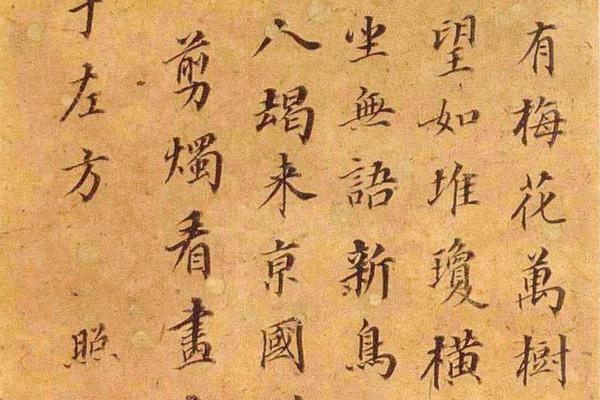 有梅花萬樹
望如堆瓊橫
坐無語新鳥
八朅来京國
剪燭看畫
于左方 照